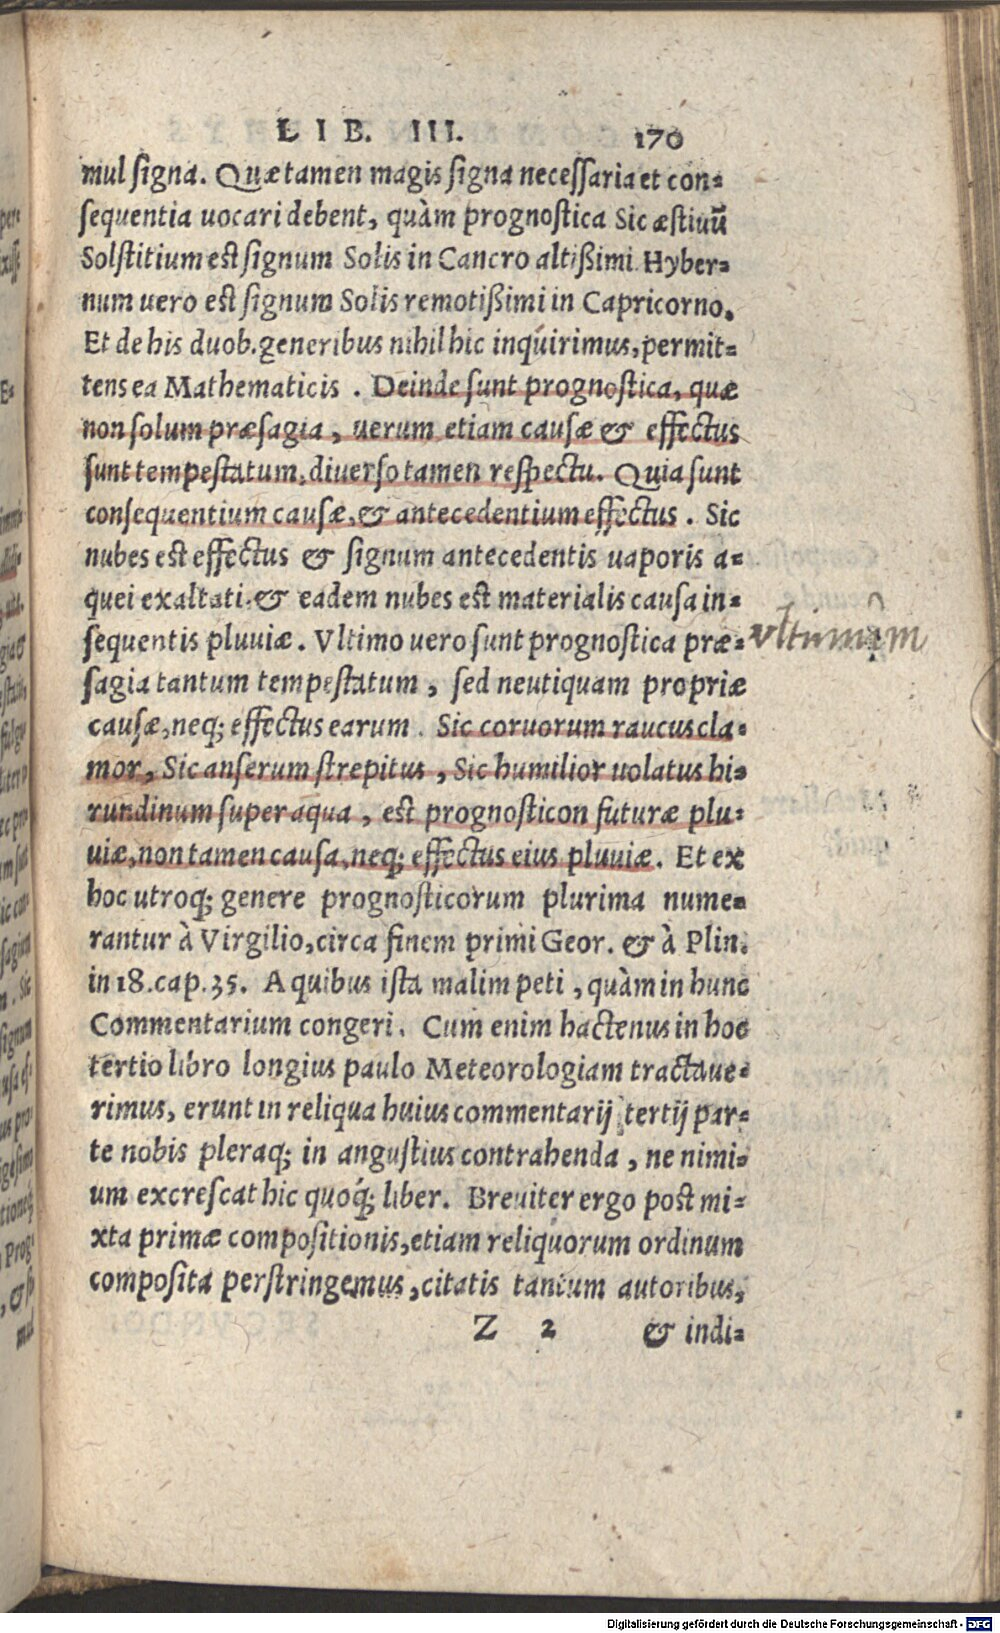 LIB. III. 170
mul signa. Quæ tamen magis signa necessaria et con=
sequentia uocari debent, quàm prognostica Sic æstiuū
Solstitium est signum Solis in Cancro altißimi Hyber=
num uero est signum Solis remotißimi in Capricorno.
Et de his duob. generibus nihil hic inquirimus, permit=
tens ea Mathematicis. Deinde sunt prognostica, quæ
non solum præsagia, uerum etiam causæ & effectus
sunt tempestatum, diuerso tamen respectu. Quia sunt
consequentium causæ, & antecedentium effectus. Sic
nubes est effectus & signum antecedentis uaporis a=
quei exaltati, & eadem nubes est materialis causa in=
sequentis pluuiæ. Vltimo uero sunt prognostica præ=
vltimum
sagia tantum tempestatum, sed neutiquam propriæ
causæ, neq; effectus earum. Sic coruorum raucus cla=
mor, Sic anserum strepitus, Sic humilior uolatus hi=
rundinum super aqua, est prognosticon futuræ plu=
uiæ, non tamen causa, neq; effectus eius pluuiæ. Et ex
hoc utroq; genere prognosticorum plurima nume=
rantur à Virgilio, circa finem primi Geor. & à Plin.
in 18. cap. 35. A quibus ista malim peti, quàm in hunc
Commentarium congeri. Cum enim hactenus in hoc
tertio libro longius paulo Meteorologiam tractaue=
rimus, erunt in reliqua huius commentarij tertij par=
te nobis pleraq; in angustius contrahenda, ne nimi=
um excrescat hic quoq́; liber. Breuiter ergo post mi=
xta primæ compositionis, etiam reliquorum ordinum
composita perstringemus, citatis tantum autoribus,
Z 2 & indi=
Digitalisierung gefördert durch die Deutsche Forschungsgemeinschaft - DFG